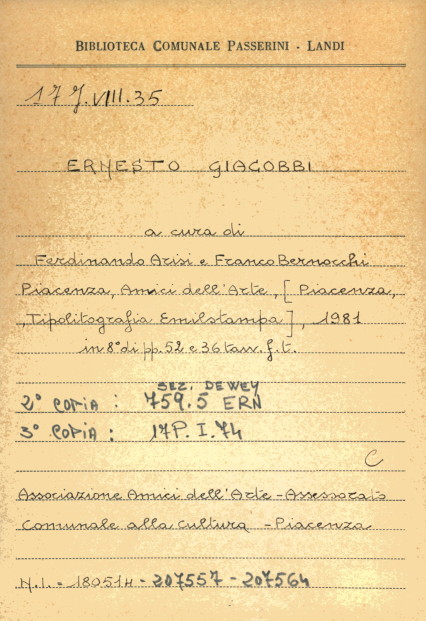 BIBLIOTECA COMUNALE PASSERINI - LANDI
17 J.VIII.35
ERNESTO GIACOBBI
a cura di
Ferdinando Arisi e Franco Bernocchi
Piacenza, Amici dell'Arte, [ Piacenza,
Tipolitografia Emilstampa ], 1981
in 8° di pp. 52 e 36 tav. f. t.
SEZ. DEWEY
2° COPIA : 759.5 ERN
3° COPIA : 17P. I. 74
C
Associazione Amici dell'Arte - Assessorato
Comunale alla Cultura - Piacenza
N.I. = 180514 - 207557 - 207564